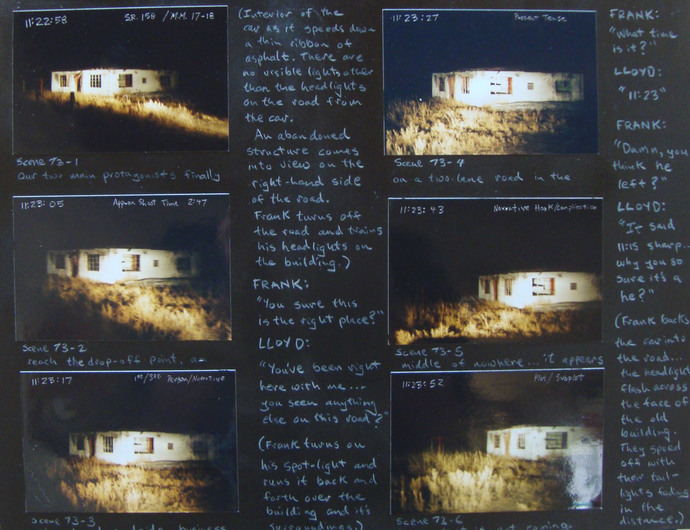 11:22:58
S.R. 158 / M.M. 17-18
Scene 73-1
Our two main protagonists finally
11:23:05
Approx Shoot Time 2:47
Scene 73-2
reach the drop-off point, an
11:23:17
1st/3rd Person/Narrative
Scene 73-3
(Interior of the
car as it speeds down
a thin ribbon of
asphalt. There are
no visible lights other
than the headlights
on the road from
the car.
An abandoned
structure comes
into view on the
right-hand side
of the road.
Frank turns off
the road and trains
his headlights on
the building.)
FRANK:
"You sure this
is the right place?"
LLOYD:
"You've been right
here with me...
you seen anything
else on this road?"
(Frank turns on
his spot-light and
runs it back and
forth over the
building and it's
surroundings.)
11:23:27
Present Tense
Scene 73-4
on a two-lane road in the
11:23:43
Narrative Hook/Complication
Scene 73-5
middle of nowhere... it appears
11:23:52
Plot / Subplot
Scene 73-6
FRANK:
"What time
is it?"
LLOYD:
"11:23"
FRANK:
"Damn, you
think he
left?"
LLOYD:
"It said
11:15 sharp...
why you so
sure it's a
he?"
(Frank backs
the car into
the road...
the headlights
flash across
the face of
the old
building.
They speed
off with
their tail-
lights fading
in the
distance.)